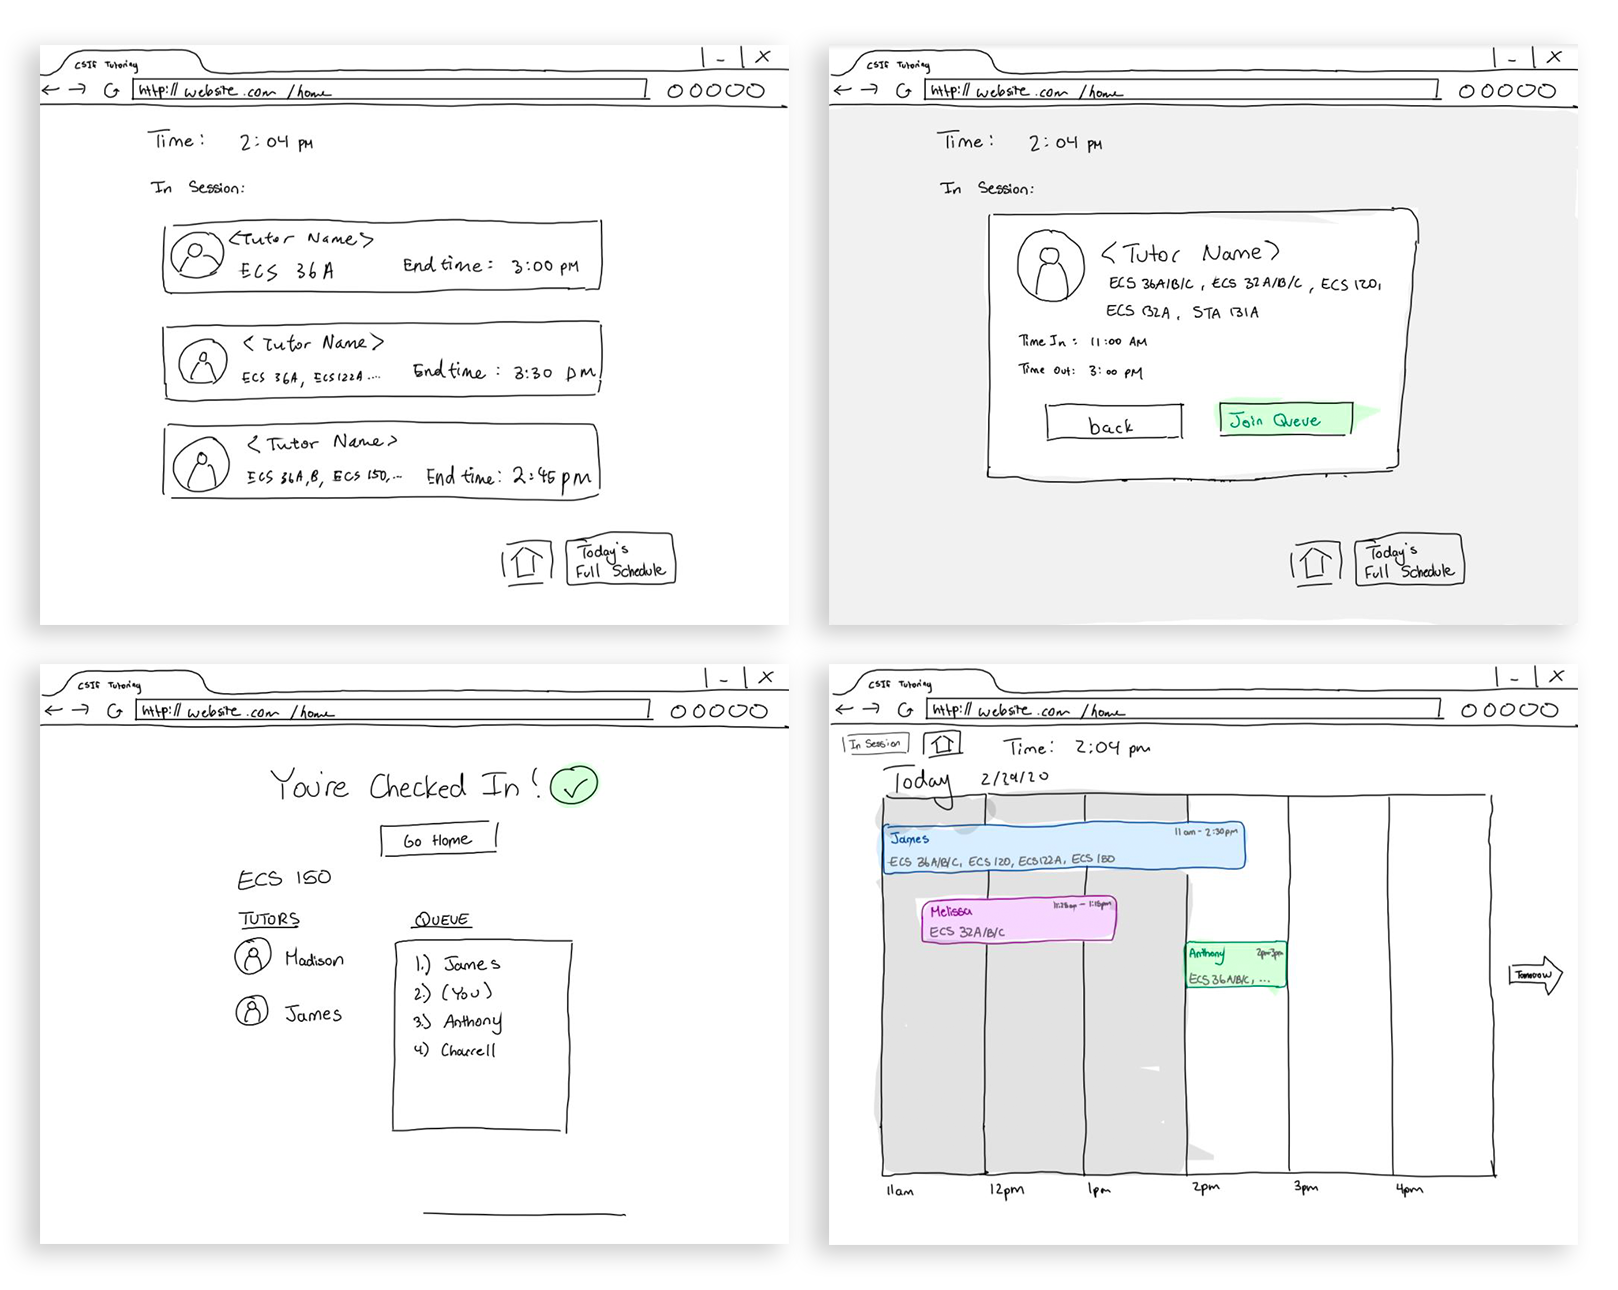 CSIF Tutoring
http:// website.com /home
Time: 2:04 PM
In Session:
<Tutor Name>
ECS 36A
End time: 3:00 PM
<Tutor Name>
ECS 36A, ECS122A....
End time: 3:30 PM
<Tutor Name>
ECS 36A,B, ECS 150,...
End time: 2:45 pm
Today's
Full Schedule
CSIF Tutoring
http:// website.com /home
Time: 2:04 PM
In Session:
<Tutor Name>
ECS 36A/B/C, ECS 32A/B/C, ECS 120,
ECS 132A, STA 131A
Time In: 11:00 AM
Time Out: 3:00 PM
back
Join Queue
Today's
Full Schedule
CSIF Tutoring
http:// website.com /home
You're Checked In!
Go Home
ECS 150
TUTORS
Madison
James
QUEUE
1.) James
2.) (You)
3.) Anthony
4) Charrell
CSIF Tutoring
http:// website.com /home
In Session
Time: 2:04 pm
Today 2/29/20
James
11am - 2:30pm
ECS 36A/B/C, ECS 120, ECS122A, ECS 150
Melissa
ECS 32A/B/C
Anthony
2pm-3pm
ECS 36A/B/C, ...
Tomorrow
11am
12pm
1pm
2pm
3pm
4pm